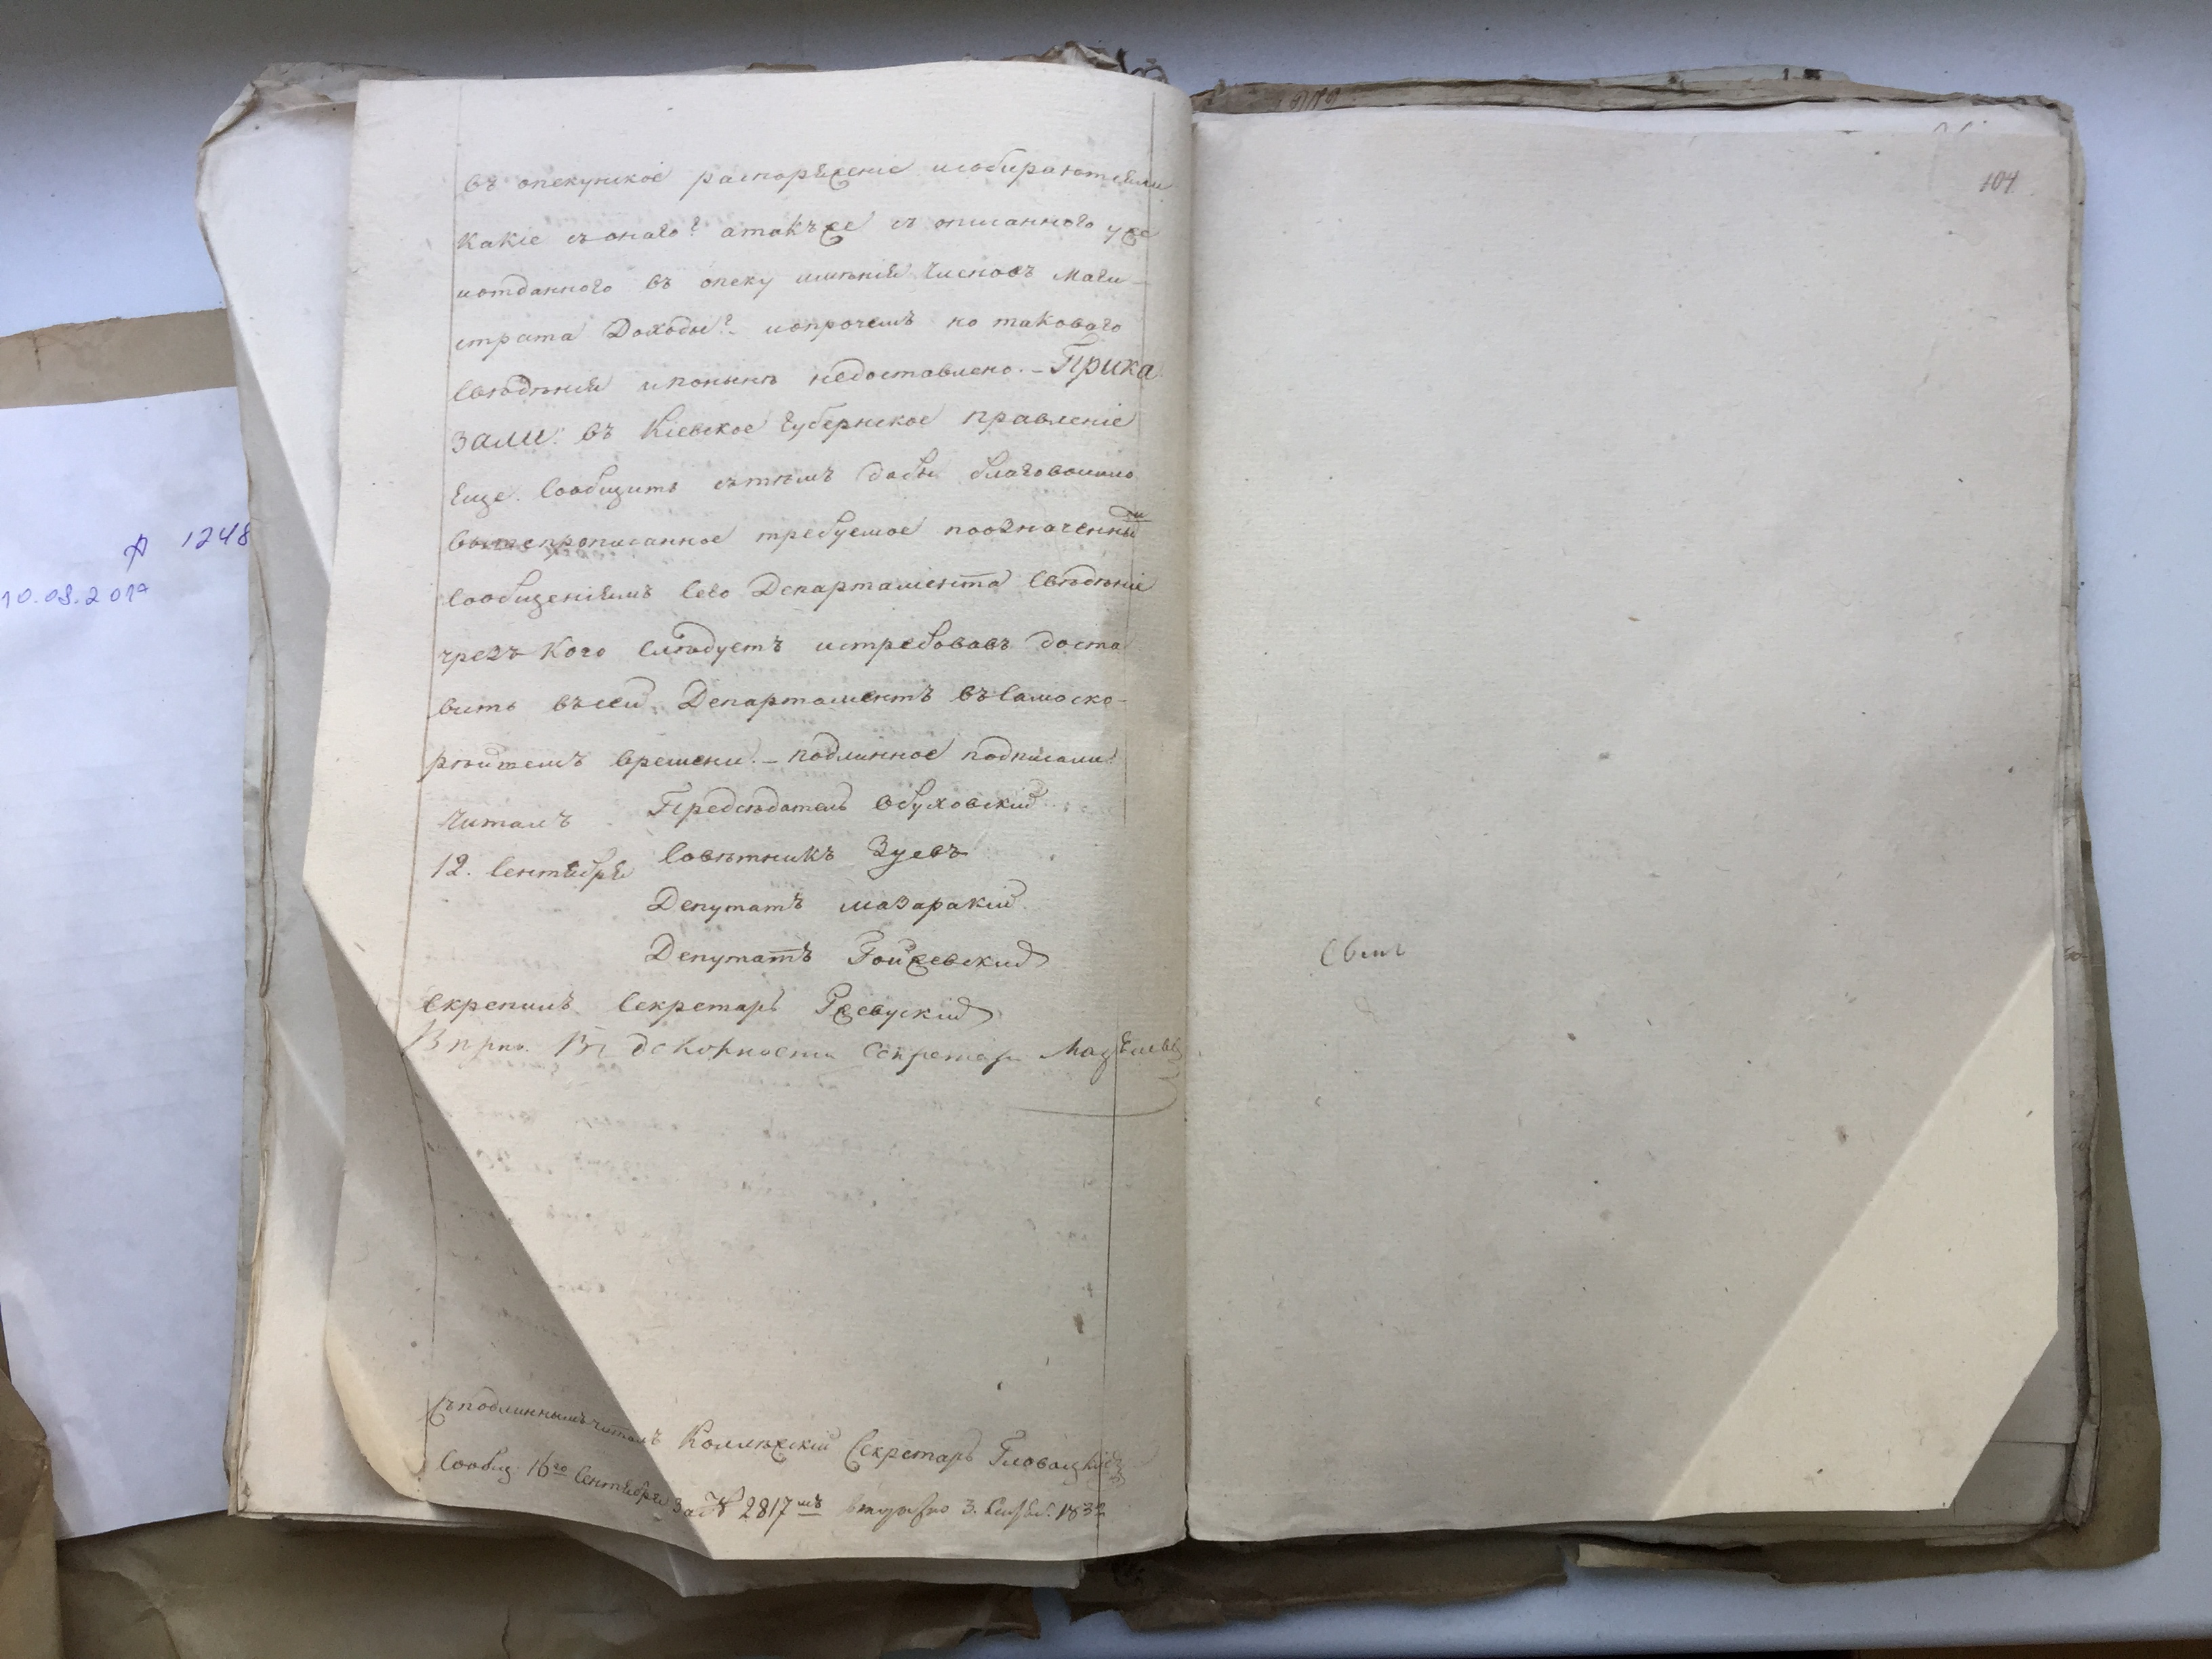 въ опекунское распоряженіе исобираютсяли
какіе съ онаго? атакъже съ описанного уже
иотданного въ опеку имѣнія Членовъ Маги-
страта Доходы? ипрочемъ но таковаго
Свѣдѣнія ипонынѣ недоставлено. – Прика
зали: въ Кіевское Губернское правленіе
Еще Сообщить сътѣмъ дабы благоволило
вышепрописанное требуемое поозначенный
Сообщеніямъ Сего Департамента Свѣдѣніе
чрезъ Кого Слѣдуетъ истребовавъ доста
вить въсей Департаментъ въСамоско-
рѣйшемъ времени. – подлинное подписали:
Читалъ Предсѣдатель Обуховскій
12. Сентября Совѣтникъ Зуевъ
Депутатъ Мазаракій
Депутатъ Гойжевскій
Скрепилъ Секретарь Ржевускій
Секретаря
Съподлиннымъ читалъ Коллежскій Секретарь Гловацкій
Сообщ. 16го Сентября За № 2817мъ 3. 183
104
А 1248
10.08.201